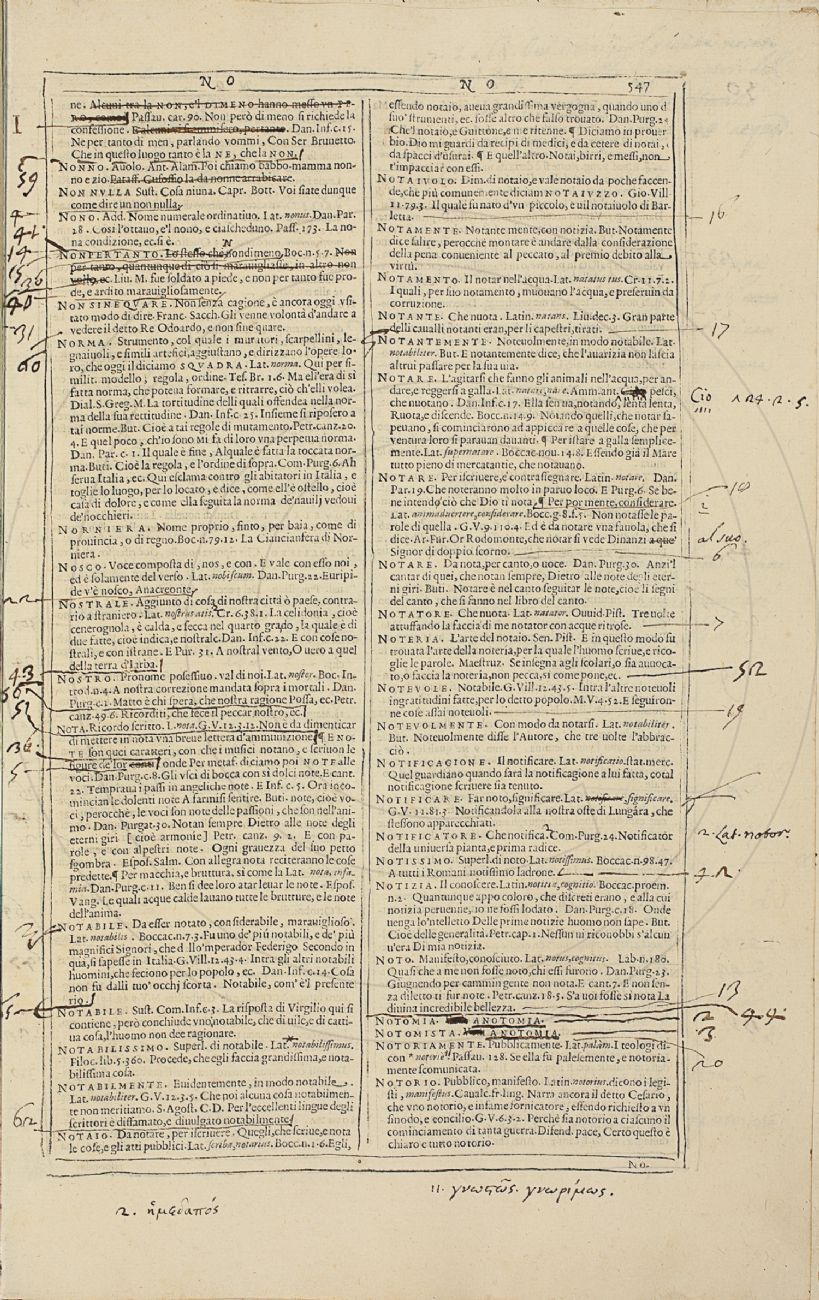 N O
N O
547
ne. Alcuni tra la NON, e'l DIMENO hanno messo vn PE-
RO, come Passau. car. 90. Non però di meno si richiede la
confessione. Dan. Inf. c. 15.
Ne per tanto di men, parlando vommi, Con Ser Brunetto.
Che in questo luogo tanto è la NE, che la NON.
NONNO. Auolo. Ant. Alam. Poi chiamo babbo, mamma non-
no e zio.
NON NVLLA Sust. Cosa niuna. Capr. Bott. Voi siate dunque
come dire un non nulla.
NONO. Add. Nome numerale ordinatiuo. Lat. nonus. Dan. Par.
28. Così l'ottauo, e'l nono, e ciascheduno. Pass. 173. La no-
na condizione, ec. si è.
NONPERTANTO. Lo stesso che, nondimeno. Boc. n. 5. 7. Non
per tanto, quantunque di ciò si marauigliasse, in altro non
volle, ec. Liu. M. fue soldato a piede, e non per tanto fue pro-
de, e ardito marauigliosamente.
NON SINE QVARE. Non senza cagione, è ancora oggi vsi-
tato modo di dire. Franc. Sacch. Gli venne volontà d'andare a
vedere il detto Re Odoardo, e non sine quare.
NORMA. Strumento, col quale i muratori, scarpellini, le-
gnaiuoli, e simili artefici, aggiustano, e dirizzano l'opere lo-
ro, che oggi il diciamo SQVADRA. Lat. norma. Qui per si-
milit. modello, regola, ordine. Tes. Br. 1. 6. Ma ell'era di sì
fatta norma, che potena formare, e ritrarre, ciò ch'elli volea.
Dial. S. Greg. M. La tortitudine delli quali offendea nella nor-
ma della sua rettitudine. Dan. Inf. c. 25. Insieme si risposero a
tai norme. But. Cioè a tai regole di mutamento. Petr. canz. 20.
4. E quel poco, ch'io sono Mi fa di loro vna perpetua norma.
Dan. Par. c. 1. Il quale è fine, Al quale è fatta la toccata nor-
ma. Buti. Cioè la regola, e l'ordine di sopra. Com. Purg. 6. Ah
serua Italia, ec. Qui esclama contro gli abitatori in Italia, e
toglie lo luogo, per lo locato, e dice, come ell'è ostello, cioè
casa di dolore, e come ella seguita la norma de' nauilj vedoui
de' nocchieri.
NORNIERA. Nome proprio, finto, per baia, come di
prouincia, o di regno. Boc. n. 79. 12. La Ciancianfera di Nor-
niera.
NOSCO. Voce composta di, nos, e con. E vale con esso noi,
ed è solamente del verso. Lat. nobiscum. Dan. Purg. 22. Euripi-
de v'è nosco, Anacreonte.
NOSTRALE. Aggiunto di cosa di nostra città o paese, contra-
rio a straniero. Lat. nostratis. Cr. 6. 38. 1. La celidonia, cioè
cenerognola, è calda, e secca nel quarto grado, la quale è di
due fatte, cioè indica, e nostrale. Dan. Inf. c. 22. E con cose no-
strali, e con istrane. E Pur. 31. A nostral vento, O uero a quel
della terra d'Iarba.
NOSTRO. Pronome possessiuo. val di noi. Lat. noster. Boc. In-
trod. n. 4. A nostra correzione mandata sopra i mortali. Dan.
Purg. c. 3. Matto è chi spera, che nostra ragione Possa, ec. Petr.
canz. 49. 6. Ricorditi, che fece il peccar nostro, ec.
NOTA. Ricordo scritto. L. nota. G. V. 12. 3. 12. Non è da dimenticar
di mettere in nota vna breue lettera d'ammunizione. ¶ E NO-
TE son quei caratteri, con che i musici notano, e scriuon le
figure de' lor onde Per metaf. diciamo poi NOTE alle
voci. Dan. Purg. c. 8. Gli vscì di bocca con sì dolci note. E cant.
22. Tempraua i passi in angeliche note. E Inf. c. 5. Ora inco-
mincian le dolenti note A farmisi sentire. Buti. note, cioè vo-
ci, perocchè, le voci son note delle passioni, che son nell'ani-
mo. Dan. Purgat. 30. Notan sempre Dietro alle note degli
eterni giri [cioè armonie] Petr. canz. 9. 2. E con pa-
role, e con alpestri note. Ogni grauezza del suo petto
sgombra. Espos. Salm. Con allegra nota reciteranno le cose
predette. ¶ Per macchia, e bruttura, si come la Lat. nota, infa-
mia. Dan. Purg. c. 11. Ben si dee loro atar leuar le note. Espos.
Vang. Le quali acque calde lauano tutte le brutture, e le note
dell'anima.
NOTABILE. Da esser notato, considerabile, marauiglioso.
Lat. notabilis. Boccac. n. 7. 3. Fu uno de' più notabili, e de' più
magnifici Signori, che dallo 'mperador Federigo Secondo in
quà, si sapesse in Italia. G. Vill. 12. 43. 4. Intra gli altri notabili
huomini, che feciono per lo popolo, ec. Dan. Inf. c. 14. Cosa
non fu dalli tuo' occhj scorta. Notabile, com' è l presente
rio.
NOTABILE. Sust. Com. Inf. c. 3. La risposta di Virgilio qui si
contiene, però conchiude vno notabile, che di uile, e di catti-
ua cosa, l'huomo non dee ragionare.
NOTABILISSIMO. Superl. di notabile. Lat. notabilissimus.
Filoc. lib. 5. 360. Procede, che egli faccia grandissima, e nota-
bilissima cosa.
NOTABILMENTE. Euidentemente, in modo notabile.
Lat. notabiliter. G. V. 12. 3. 5. Che noi alcuna cosa notabilmen-
te non meritiamo. S. Agost. C. D. Per l'eccellenti lingue degli
scrittori è diffamato, e diuulgato notabilmente.
NOTAIO. Da notare, per iscriuere. Quegli, che scriue, e nota
le cose, e gli atti pubblici. Lat. scriba, notarius. Bocc. n. 1. 6. Egli,
essendo notaio, aueua grandissima vergogna, quando uno d
suo' strumenti, ec. fosse altro che falso trouato. Dan. Purg. 24
Che'l notaio, e Guittone, e me ritenne. ¶ Diciamo in prouer
bio. Dio mi guardi da recipi di medici, e da cetere di notai,
da spacci d'usurai. ¶ E quell'altro. Notai, birri, e messi, non
t'impacciar con essi.
NOTAIVOLO. Dim. di notaio, e vale notaio da poche faccen-
de, che più comunemente diciam NOTAIVZZO. Gio. Vill.
11. 79. 3. Il quale fu nato d'vn piccolo, e uil notaiuolo di Bar-
letta.
NOTAMENTE. Notantemente, con notizia. But. Notamente
dice salire, perocchè montare è andare dalla considerazione
della pena conueniente al peccato, al premio debito alla
virtù.
NOTAMENTO. Il notar nell'acqua. Lat. natatus tus. Cr. 11. 7. 2.
I quali, per suo notamento, muouano l'acqua, e preseruin da
corruzione.
NOTANTE. Che nuota. Latin. natans. Liu. dec. 3. Gran parte
delli caualli notanti eran, per li capestri, tirati.
NOTANTEMENTE. Noteuolmente, in modo notabile. Lat.
notabiliter. But. E notantemente dice, che l'auarizia non lascia
altrui passare per la sua uia.
NOTARE. L'agitarsi che fanno gli animali nell'acqua, per an-
dare, e reggersi a galla. Lat. natare, nare. Amm. ant. pesci,
che nuotano. Dan. Inf. c. 17. Ella sen va, notando, lenta lenta,
Ruota, e discende. Bocc. n. 14. 9. Notando quelli, che notar sa-
peuano, si cominciarono ad appiccare a quelle cose, che per
ventura loro si parauan dauanti. ¶ Per istare a galla semplice-
mente. Lat. supernatare. Boccac. nou. 14. 8. Essendo già il Mare
tutto pieno di mercatantie, che notauano.
NOTARE. Per iscriuere, e contrassegnare. Latin. notare. Dan.
Par. 19. Che noteranno molto in paruo loco. E Purg. 6. Se be-
ne intendo ciò che Dio ti nota. ¶ Per por mente, considerare.
Lat. animaduertere, considerare. Bocc. g. 8. f. 5. Non notasse le pa-
role di quella. G. V. 9. 110. 4. Ed è da notare vna fauola, che si
dice. Ar. Fur. Or Rodomonte, che notar si vede Dinanzi a que'
Signor di doppio scorno.
NOTARE. Da nota, per canto, o uoce. Dan. Purg. 30. Anzi'l
cantar di quei, che notan sempre, Dietro alle note degli eter-
ni giri. Buti. Notare è nel canto seguitar le note, cioè li segni
del canto, che si fanno nel libro del canto.
NOTATORE. Che nuota. Lat. natator. Ouuid. Pist. Tre uolte
attuffando la faccia di me notator con acque ritrose.
NOTERIA. L'arte del notaio. Sen. Pist. E in questo modo su
trouata l'arte della noteria, per la quale l'huomo scriue, e rico-
glie le parole. Maestruz. Se insegna agli scolari, o sia auuoca-
to, o faccia la noteria, non pecca, si come pone, ec.
NOTEVOLE. Notabile. G. Vill. 12. 43. 5. Intra l'altre noteuoli
ingratitudini fatte, per lo detto popolo. M. V. 4. 52. E seguiron-
ne cose assai noteuoli.
NOTEVOLMENTE. Con modo da notarsi. Lat. notabiliter.
But. Noteuolmente disse l'Autore, che tre uolte l'abbrac-
ciò.
NOTIFICAGIONE. Il notificare. Lat. notificatio. Stat. merc.
Quel guardiano quando sarà la notificagione a lui fatta, cotal
notificagione scriuere sia tenuto.
NOTIFICARE. Far noto, significare. Lat. significare.
G. V. 11. 81. 3. Notificandola alla nostra oste di Lungara, che
stessono apparecchiati.
NOTIFICATORE. Che notifica. Com. Purg. 24. Notificator
della uniuersa pianta, e prima radice.
NOTISSIMO. Superl. di noto. Lat. notissimus. Boccac. n. 98. 47.
A tutti i Romani notissimo ladrone.
NOTIZIA. Il conoscere. Latin. notitia, cognitio. Boccac. proem.
n. 2. Quantunque appo coloro, che discreti erano, e alla cui
notizia peruenne, io ne fossi lodato. Dan. Purg. c. 18. Onde
uenga lo'ntelletto Delle prime notizie huomo non sape. But.
Cioè delle generalità. Petr. cap. 1. Nessun ui riconobbi s'alcun
u'era Di mia notizia.
NOTO. Manifesto, conosciuto. Lat. notus, cognitus. Lab. n. 180.
Quasi che a me non fosse noto, chi essi furono. Dan. Purg. 23.
Giugnendo per cammin gente non nota. E cant. 7. E non sen-
za diletto ti fur note. Petr. canz. 18. 5. S'a uoi fosse sì nota La
diuina incredibile bellezza.
NOTOMIA. ANOTOMIA.
NOTOMISTA. ANOTOMIA.
NOTORIAMENTE. Pubblicamente. Lat. palàm. I teologi di-
con notoriè. Passau. 128. Se ella fu palesemente, e notoria-
mente scomunicata.
NOTORIO. Pubblico, manifesto. Latin. notorius. dicono i legi-
sti, manifestus. Caualc. fr. ling. Narra ancora il detto Cesario,
che vno notorio, e infame fornicatore, essendo richiesto a vn
sinodo, e concilio. G. V. 6. 3. 2. Perchè sia notorio a ciascuno il
cominciamento di tanta guerra. Difend. pace, Certo questo è
chiaro e tutto notorio.
No.
1
59
4
41
14
15
40
31
60
22
43
56
51
36
5
62
16
17
Cio 124. 2. 5.
18
al suo.
6
7
52
19
2. Lat. notor.
42
13
2 44
3
20
2. ἡμεδαπός
11. γνωστῶς. γνωρίμως.